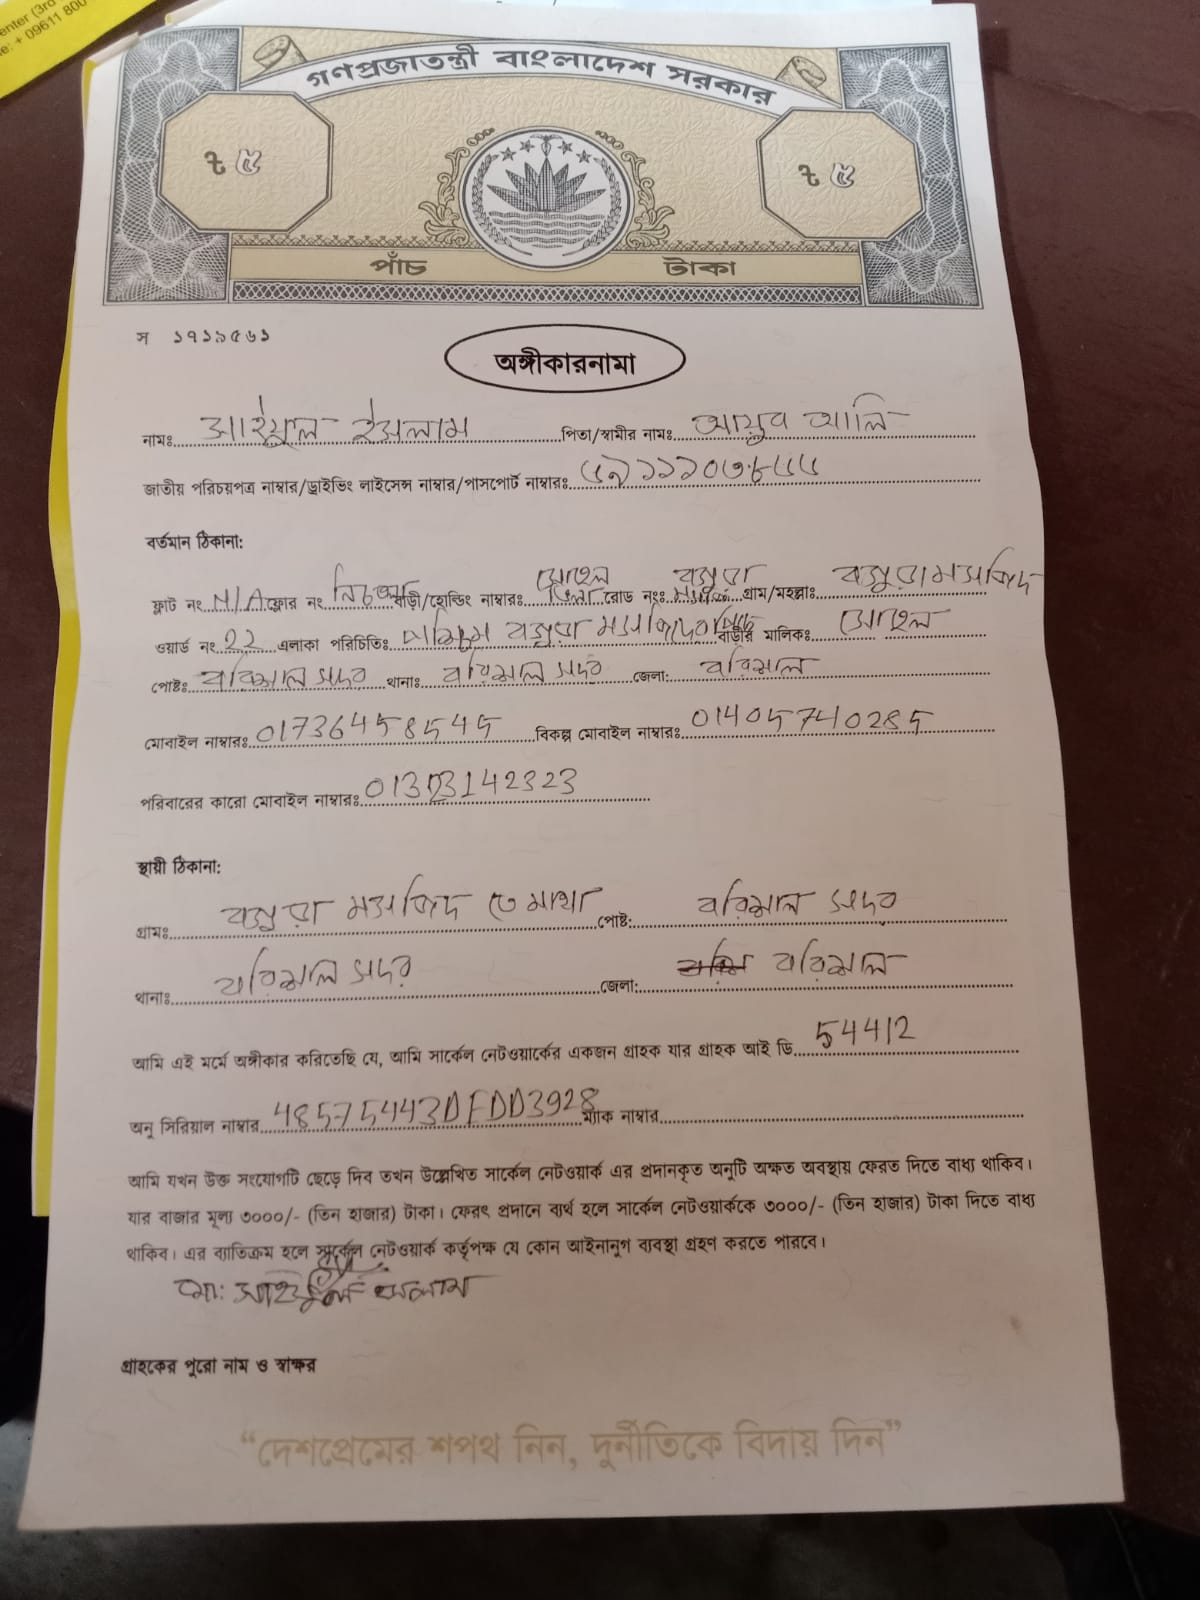 enter (3rd
e: + 09611 800
গণপ্রজাতন্ত্রী বাংলাদেশ সরকার
৳ ৫ ৳ ৫
পাঁচ টাকা
স ১৭১৯৫৬১
অঙ্গীকারনামা
নামঃ ইসলাম পিতা/স্বামীর নামঃ আয়ুব আলি
জাতীয় পরিচয়পত্র নাম্বার/ড্রাইভিং লাইসেন্স নাম্বার/পাসপোর্ট নাম্বারঃ
বর্তমান ঠিকানা:
ফ্লাট নং N/A ফ্লোর নং নিচতলা বাড়ী/হোল্ডিং নাম্বারঃ সোহেল ভিলা রোড নং: বগুরা গ্রাম/মহল্লাঃ বগুরা মসজিদ
ওয়ার্ড নং 22 এলাকা পরিচিতিঃ বগুরা মসজিদের বাড়ীর মালিক: সোহেল
পোষ্টঃ বরিশাল সদর থানাঃ বরিশাল সদর জেলা: বরিশাল
মোবাইল নাম্বারঃ 01736458545 বিকল্প মোবাইল নাম্বারঃ 01405740285
পরিবারের কারো মোবাইল নাম্বারঃ
স্থায়ী ঠিকানা:
গ্রামঃ বগুরা মসজিদ তে মাথা পোষ্ট: বরিশাল সদর
থানাঃ বরিশাল সদর জেলা: বরিশাল
আমি এই মর্মে অঙ্গীকার করিতেছি যে, আমি সার্কেল নেটওয়ার্কের একজন গ্রাহক যার গ্রাহক আই ডি 54412
অনু সিরিয়াল নাম্বার 48575443DFDD3928 ম্যাক নাম্বার
আমি যখন উক্ত সংযোগটি ছেড়ে দিব তখন উল্লেখিত সার্কেল নেটওয়ার্ক এর প্রদানকৃত অনুটি অক্ষত অবস্থায় ফেরত দিতে বাধ্য থাকিব।
যার বাজার মূল্য ৩০০০/- (তিন হাজার) টাকা। ফেরৎ প্রদানে ব্যর্থ হলে সার্কেল নেটওয়ার্ককে ৩০০০/- (তিন হাজার) টাকা দিতে বাধ্য
থাকিব। এর ব্যাতিক্রম হলে সার্কেল নেটওয়ার্ক কর্তৃপক্ষ যে কোন আইনানুগ ব্যবস্থা গ্রহণ করতে পারবে।
মো: ইসলাম
গ্রাহকের পুরো নাম ও স্বাক্ষর
“দেশপ্রেমের শপথ নিন, দুর্নীতিকে বিদায় দিন”